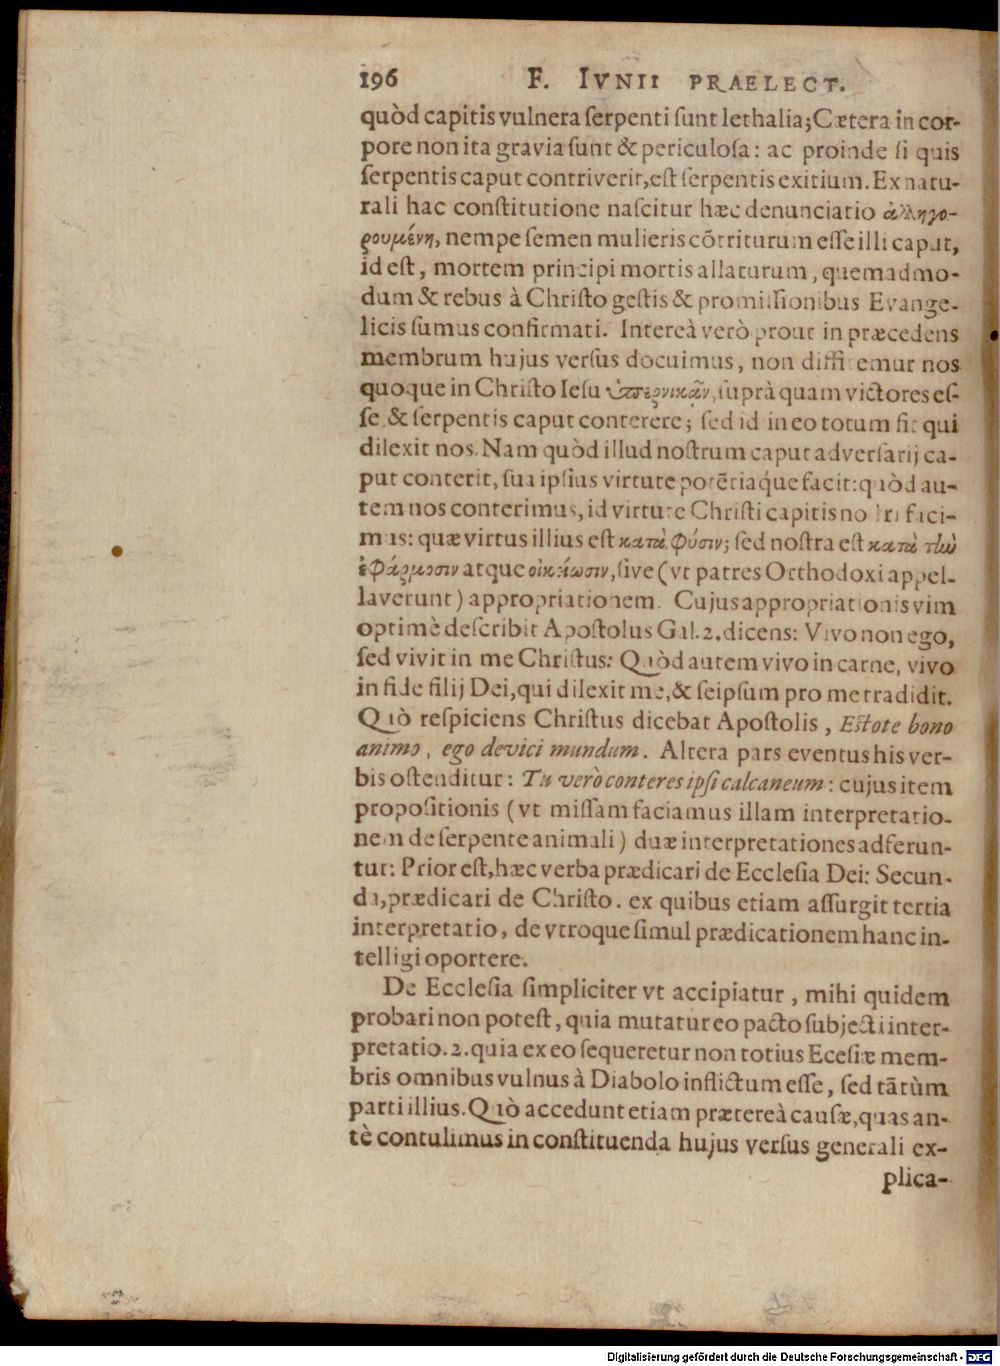 196 F. IVNII PRAELECT.
quòd capitis vulnera ſerpenti ſunt lethalia; Cætera in cor-
pore non ita gravia ſunt & periculoſa: ac proinde ſi quis
ſerpentis caput contriverit, eſt ſerpentis exitium. Ex natu-
rali hac conſtitutione naſcitur hæc denunciatio ἀλληγο-
ρουμένη, nempe ſemen mulieris cōtriturum eſſe illi caput,
id eſt, mortem principi mortis allaturum, quemadmo-
dum & rebus à Chriſto geſtis & promiſſionibus Evange-
licis ſumus confirmati. Intereà verò prout in præcedens
membrum hujus verſus docuimus, non diffitemur nos
quoque in Chriſto Ieſu ὑπερνικᾶν, ſuprà quam victores eſ-
ſe, & ſerpentis caput conterere; ſed id in eo totum fit qui
dilexit nos. Nam quòd illud noſtrum caput adverſarij ca-
put conterit, ſua ipſius virtute potētiaq́ue facit: quòd au-
tem nos conterimus, id virtute Chriſti capitis noſtri faci-
mus: quæ virtus illius eſt κατὰ φύσιν; ſed noſtra eſt κατὰ τὼ
ἐφάρμοσιν atque οἰκείωσιν, ſive (vt patres Orthodoxi appel-
laverunt) appropriationem. Cujus appropriationis vim
optimè deſcribit Apoſtolus Gal. 2. dicens: Vivo non ego,
ſed vivit in me Chriſtus: Quòd autem vivo in carne, vivo
in fide filij Dei, qui dilexit me, & ſeipſum pro me tradidit.
Quò reſpiciens Chriſtus dicebat Apoſtolis, Eſtote bono
animo, ego devici mundum. Altera pars eventus his ver-
bis oſtenditur: Tu verò conteres ipſi calcaneum: cujus item
propoſitionis (vt miſſam faciamus illam interpretatio-
nem de ſerpente animali) duæ interpretationes adferun-
tur: Prior eſt, hæc verba prædicari de Eccleſia Dei: Secun-
da, prædicari de Chriſto. ex quibus etiam aſſurgit tertia
interpretatio, de vtroque ſimul prædicationem hanc in-
telligi oportere.
De Eccleſia ſimpliciter vt accipiatur, mihi quidem
probari non poteſt, quia mutatur eo pacto ſubjecti inter-
pretatio. 2. quia ex eo ſequeretur non totius Eceſiæ mem-
bris omnibus vulnus à Diabolo inflictum eſſe, ſed tātùm
parti illius. Quò accedunt etiam prætereà cauſæ, quas an-
tè contulimus in conſtituenda hujus verſus generali ex-
plica-
Digitalisierung gefördert durch die Deutsche Forschungsgemeinschaft - DFG